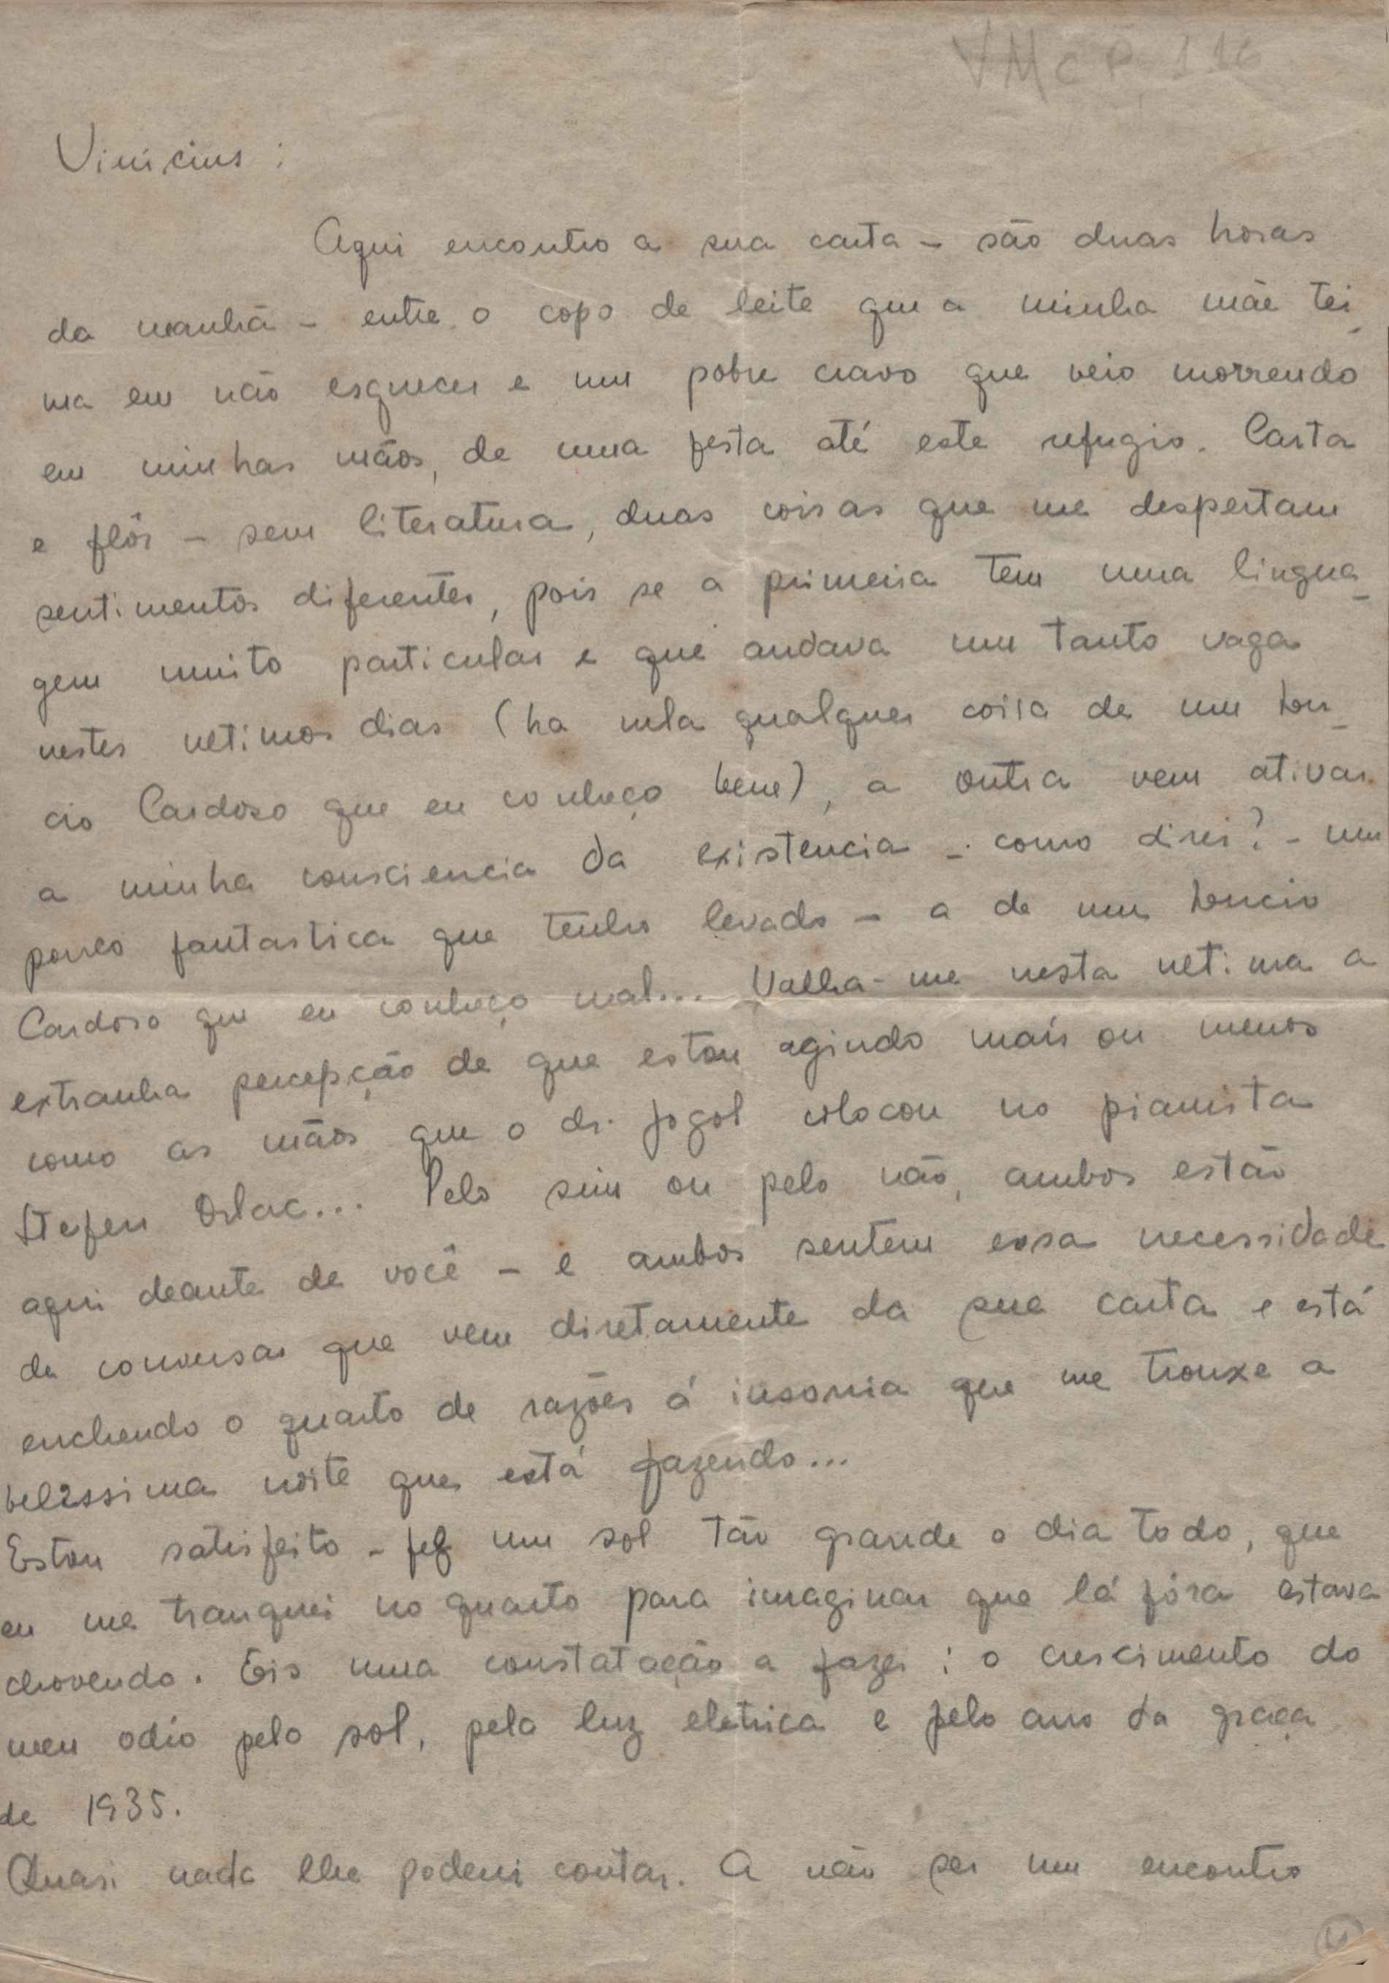 VMCP 116
Vinícius :
Aqui encontro a sua carta – são duas horas
da manhã – entre o copo de leite que a minha mãe tei_
ma em não esquecer e um pobre cravo que veio morrendo
em minhas mãos, de uma festa até este refugio. Carta
e flôr – sem literatura, duas coisas que me despertam
sentimentos diferentes, pois se a primeira tem uma lingua_
gem muito particular e que andava um tanto vaga
nestes ultimos dias (ha nela qualquer coisa de um Lu_
cio Cardoso que eu conheço bem), a outra vem ativar
a minha consciencia da existencia – como direi? – um
pouco fantastica que tenho levado – a de um Lucio
Cardoso que eu conheço mal... Valha-me nesta ultima a
extranha percepção de que estou agindo mais ou menos
como as mãos que o dr. Gogol colocou no pianista
Stefen Orlac... Pelo sim ou pelo não, ambos estão
aqui deante de você – e ambos sentem essa necessidade
de conversar que vem diretamente da sua carta e está
enchendo o quarto de razões á insonia que me trouxe a
belissima noite que está fazendo...
Estou satisfeito – fez um sol tão grande o dia todo, que
eu me tranquei no quarto para imaginar que lá fóra estava
chovendo. Eis uma constatação a fazer : o crescimento do
meu odio pelo sol, pela luz eletrica e pelo ano da graça
de 1935.
Quasi nada lhe poderei contar. A não ser um encontro